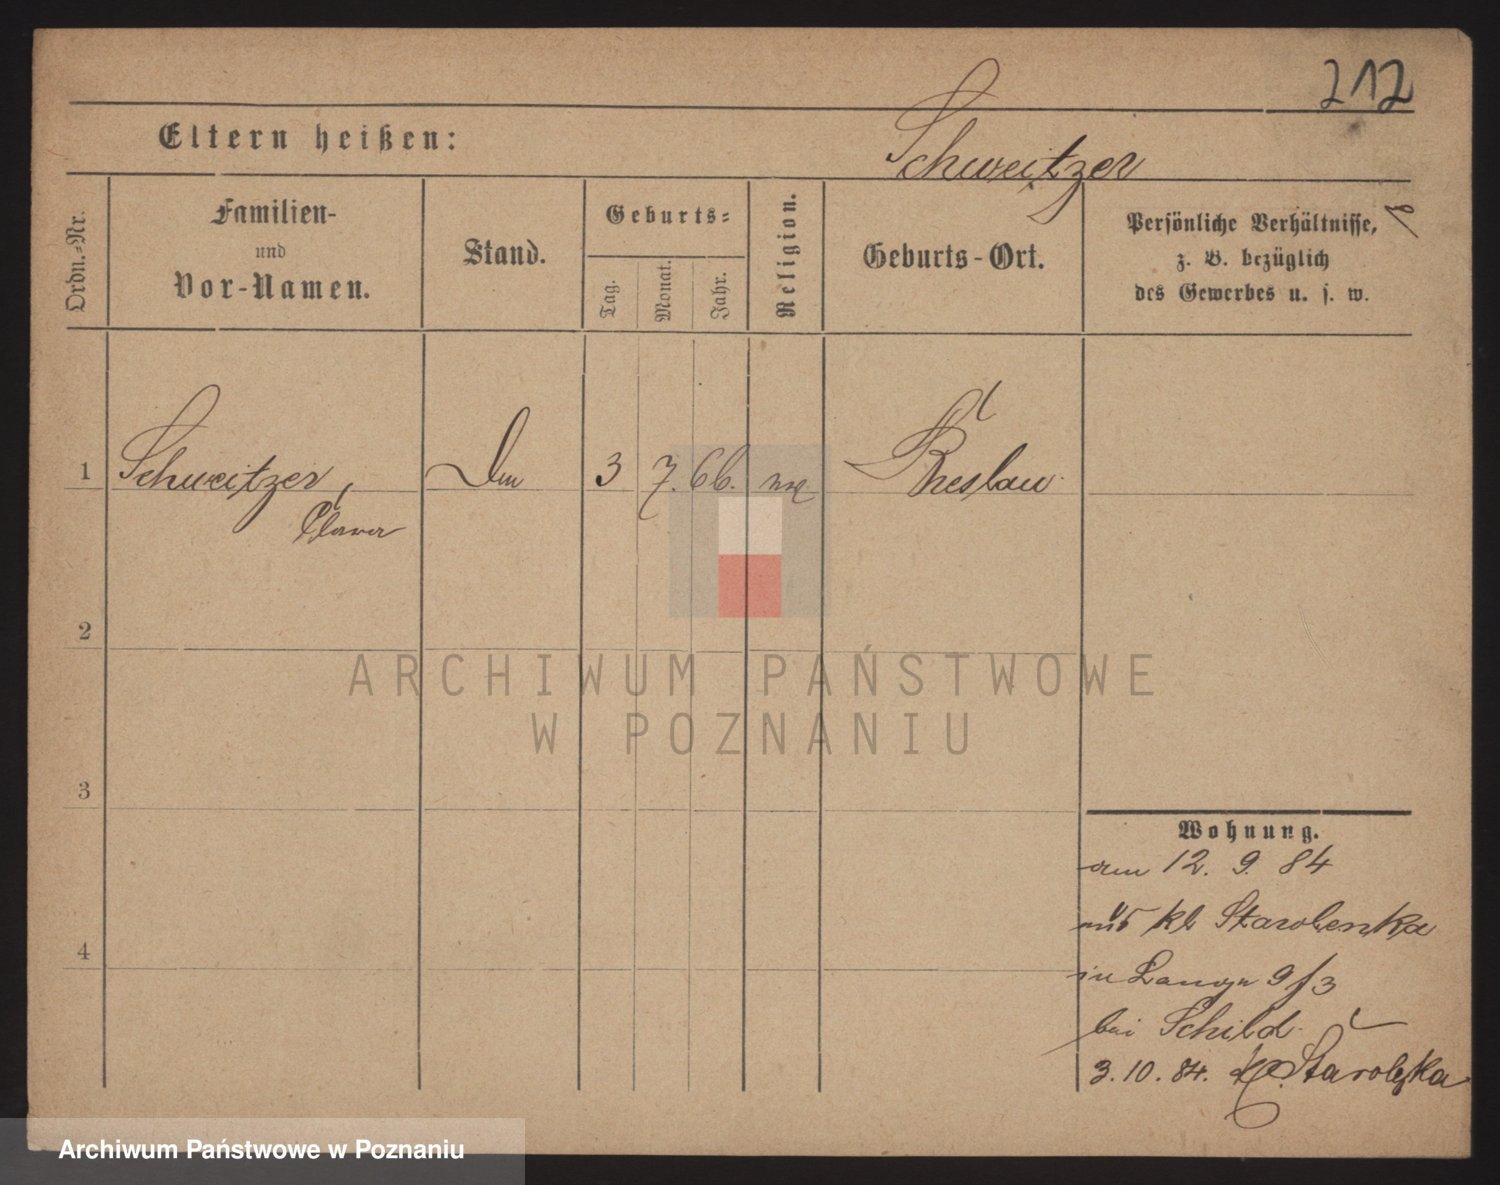 212
Eltern heißen:
Schweitzer
Ordn.-Nr.
Familien-
und
Vor-Namen.
Stand.
Geburts-
Tag.
Monat.
Jahr.
Religion.
Geburts-Ort.
Persönliche Verhältnisse,
z. B. bezüglich
des Gewerbes u. s. w.
1 Schweitzer, 3 7. 66. Breslau
Clara
2
ARCHIWUM PAŃSTWOWE
W POZNANIU
3
Wohnung.
am 12. 9. 84
aus kl Starolenka
4
in Lange 9/3
bei Schild
3.10.84. Starolęka
Archiwum Państwowe w Poznaniu